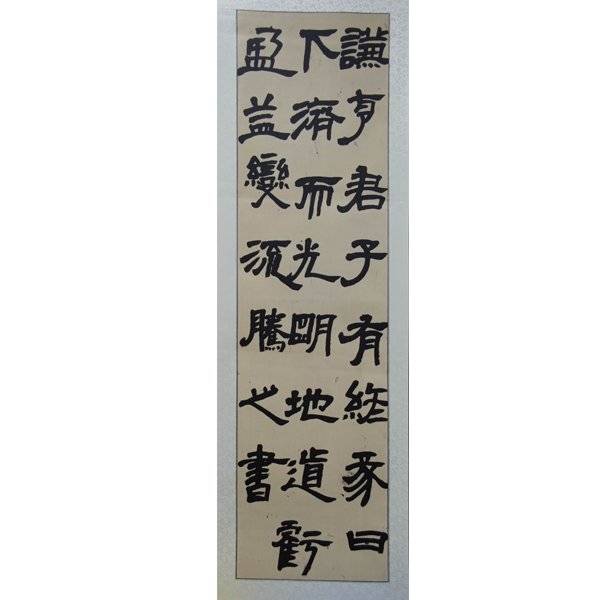 謙亨君子有終彖曰
下濟而光明地道虧
盈益變須騰之書